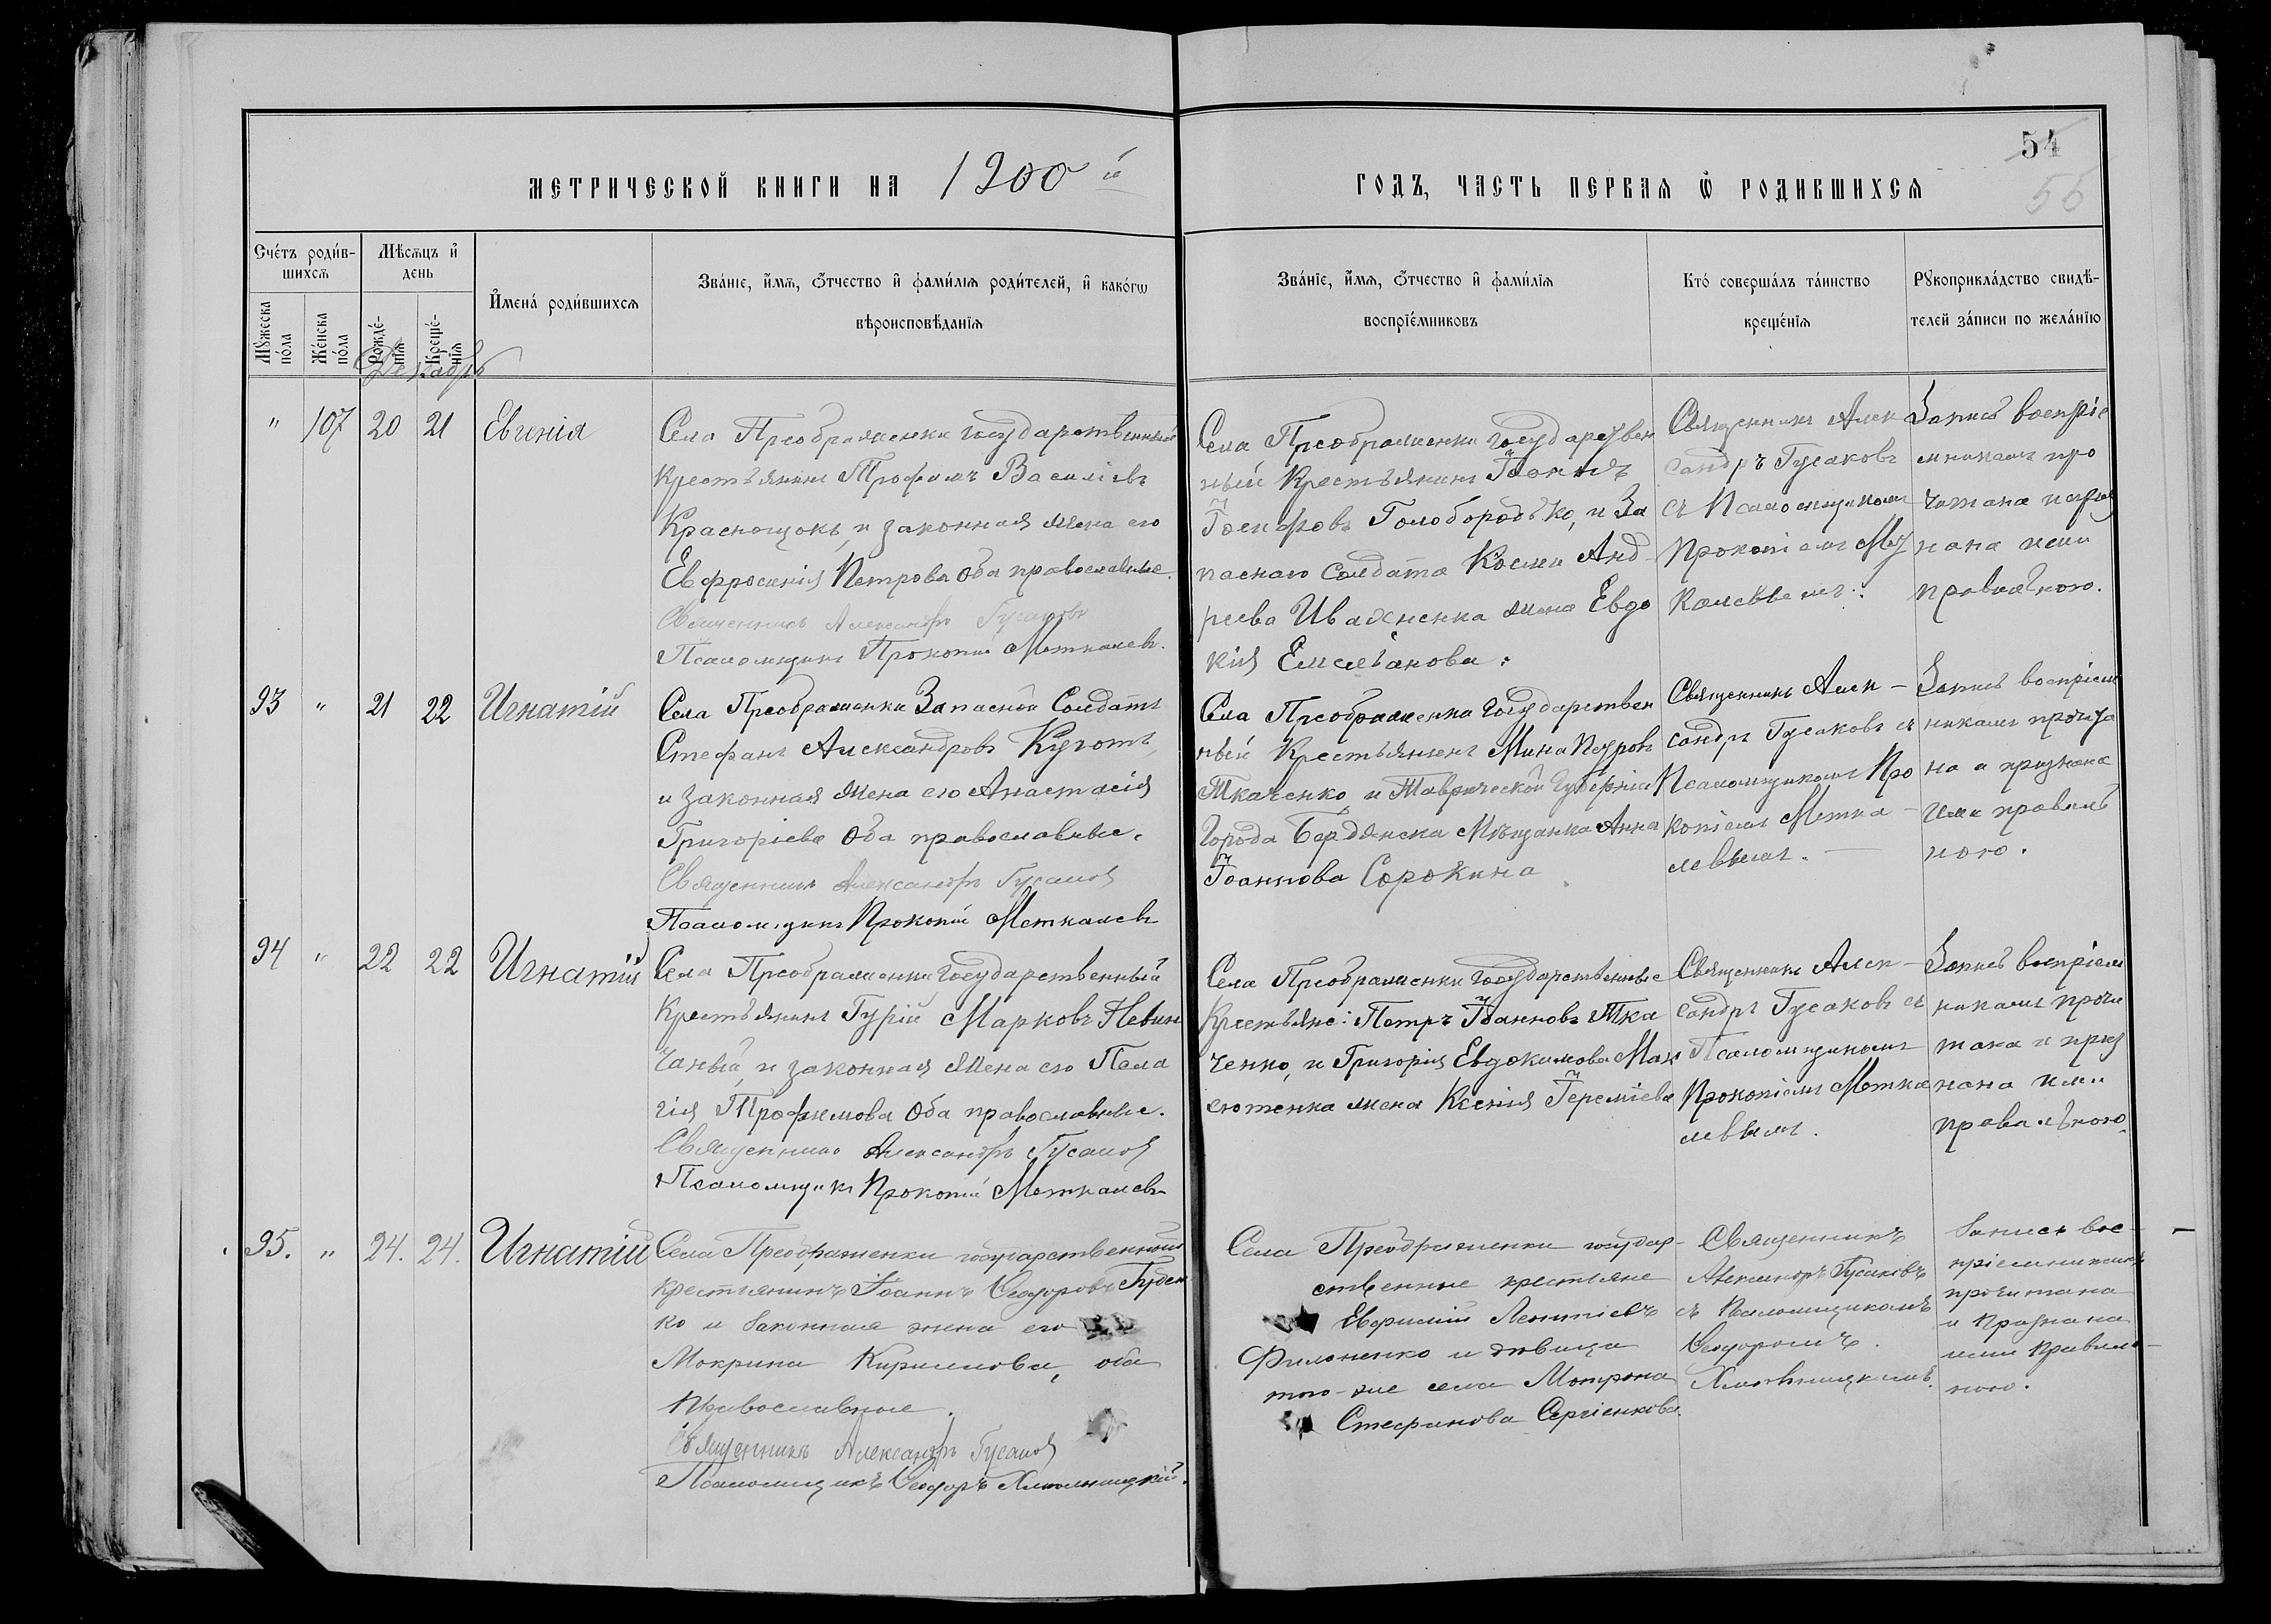 54
56
МЕТРИЧЕСКОЙ КНИГИ НА 1900й
ГОДЪ, ЧАСТЬ ПЕРВАѦ Ѡ РОДИВШИХСѦ
Сче́тъ роди́в-
шихсѧ
Мѣсѧцъ и҆
день
И҆мена́ роди́вшихсѧ
Зва́нїе, и҆́мѧ, ѻ҆́тчество и҆ фами́лїѧ роди́телей, и҆ како́гѡ
вѣроисповѣ́данїѧ
Мꙋжеска
по́ла
Же́нска
по́ла
Рожде́-
нїѧ
Креще́-
нїѧ
Декабрь
Зва́нїе, и҆́мѧ, ѻ҆́тчество и҆ фами́лїѧ
воспрїе́мниковъ
Кто́ соверша́лъ та́инство
креще́нїѧ
Рꙋкоприкла́дство свидѣ́-
телей за́писи по жела́нїю
" 107 20 21 Евгенія
Села Преображенки государственный
крестьянинъ Трофимъ Василіевъ
Краснощокъ, и законная жена его
Евфросинія Петрова оба православные.
Священникъ Александръ Гусаковъ
Псаломщикъ Прокопій Меткалевъ.
Села Преображенки государствен
ный Крестьянинъ Іоаннъ
Іосифовъ Голобородько, и За
паснаго Солдата Космы Анд-
реева Ивахненка жена Евдо
кія Емельянова.
Священникъ Алек
сандръ Гусаковъ
съ Псаломщикомъ
Прокопіемъ Мет
калевымъ.
Запись воспріе
мникамъ про
читана и приз
нана ими
правильною.
93 " 21 22 Игнатій
Села Преображенки Запасной Солдатъ
Стефанъ Александровъ
и законная жена его Анастасія
Григоріева оба православные.
Священникъ Александръ Гусаковъ
Псаломщикъ Прокопій Меткалевъ
Села Преображенки Государствен
ный Крестьянинъ Мина Петровъ
Ткаченко, и Таврической Губерніи
Города Бердянска Мѣщанка Анна
Іоаннова Сорокина
Священникъ Алек-
сандръ Гусаковъ съ
Псаломщикомъ Про
копіемъ Метка-
левымъ.
Запись воспріем
никамъ прочита
на и признана
ими правиль
ною.
94 " 22 22 Игнатій
Села Преображенки государственный
Крестьянинъ Гурій Марковъ Невин
чаный, и законная жена его Пела
гія Трофимова оба православные.
Священникъ Александръ Гусаковъ
Псаломщикъ Прокопій Меткалевъ
Села Преображенки государственные
Крестьяне: Петръ Іоанновъ Тка
ченко, и Григорія Евдокимова Мак
сютенка жена Ксенія Іереміева
Священникъ Алек-
сандръ Гусаковъ съ
Псаломщикомъ
Прокопіемъ Метка
левымъ.
Запись воспріем
никамъ прочи
тана и приз
нана ими
правильною.
95. " 24. 24. Игнатій
Села Преображенки государственный
крестьянинъ Іоаннъ Ѳеодоровъ Гуден
ко и законная жена его
Мокрина Кириллова, оба
Православные.
Священникъ Александръ Гусаковъ
Псаломщикъ Ѳеодоръ Хмельницкій.
Села Преображенки государ-
ственные крестьяне
Евфимій Леонтіевъ
Филоненко и дѣвица
того-же села Матрона
Стефанова Сергіенкова.
Священникъ
Александръ Гусаковъ
съ Псаломщикомъ
Ѳеодоромъ
Хмельницкимъ.
Запись вос-
пріемникамъ
прочитана
и признана
ими правиль-
ною.